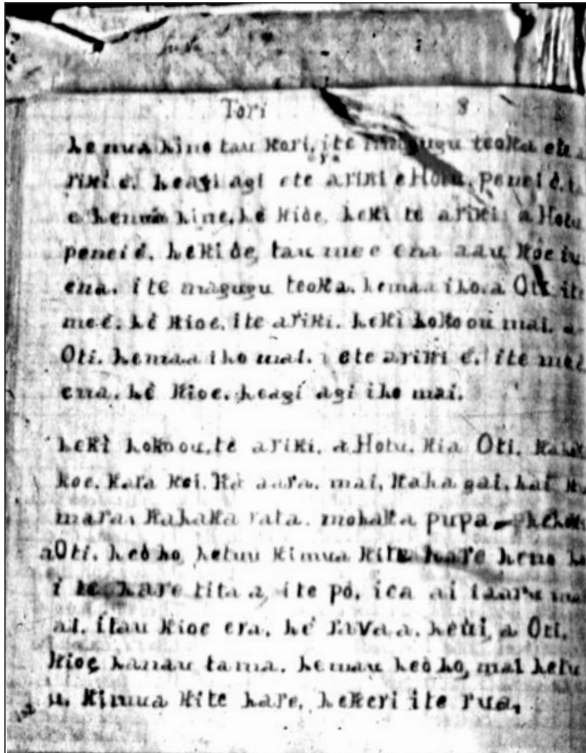 Tori 8
he mua hine tau kori, ite magugu teoka ete
eya
riki é. heagi agi ete ariki e Hotu. peneié.
e henua hine. hé kide, heki té ariki a Hotu
peneié. heki óe, tau mee ena aau koe
ena. ite magugu teoka. hemaa iho. a Oti ite
meé. hé kioe. ite ariki. heki hokoou mai. a
Oti. hemaa iho mai. i ete ariki é. ite mee
ena. hé kioe. heagi agi iho mai.
heki hokoou. té ariki. a Hotu. kia Oti.
koe. kara kei. ka aara. mai, kaha gai. hai
marai kahaka rata. mohaka pupa
a Oti. heo ho, hetuu kimua kite hare heno
i te hare tita a, ite pó. ica ai
ai. itau kioe era. hé ravaa. heui, a Oti.
kioe hanau tama. hemau heo ho, mai hetu
u. kimua kite hare. hekeri ite rua,